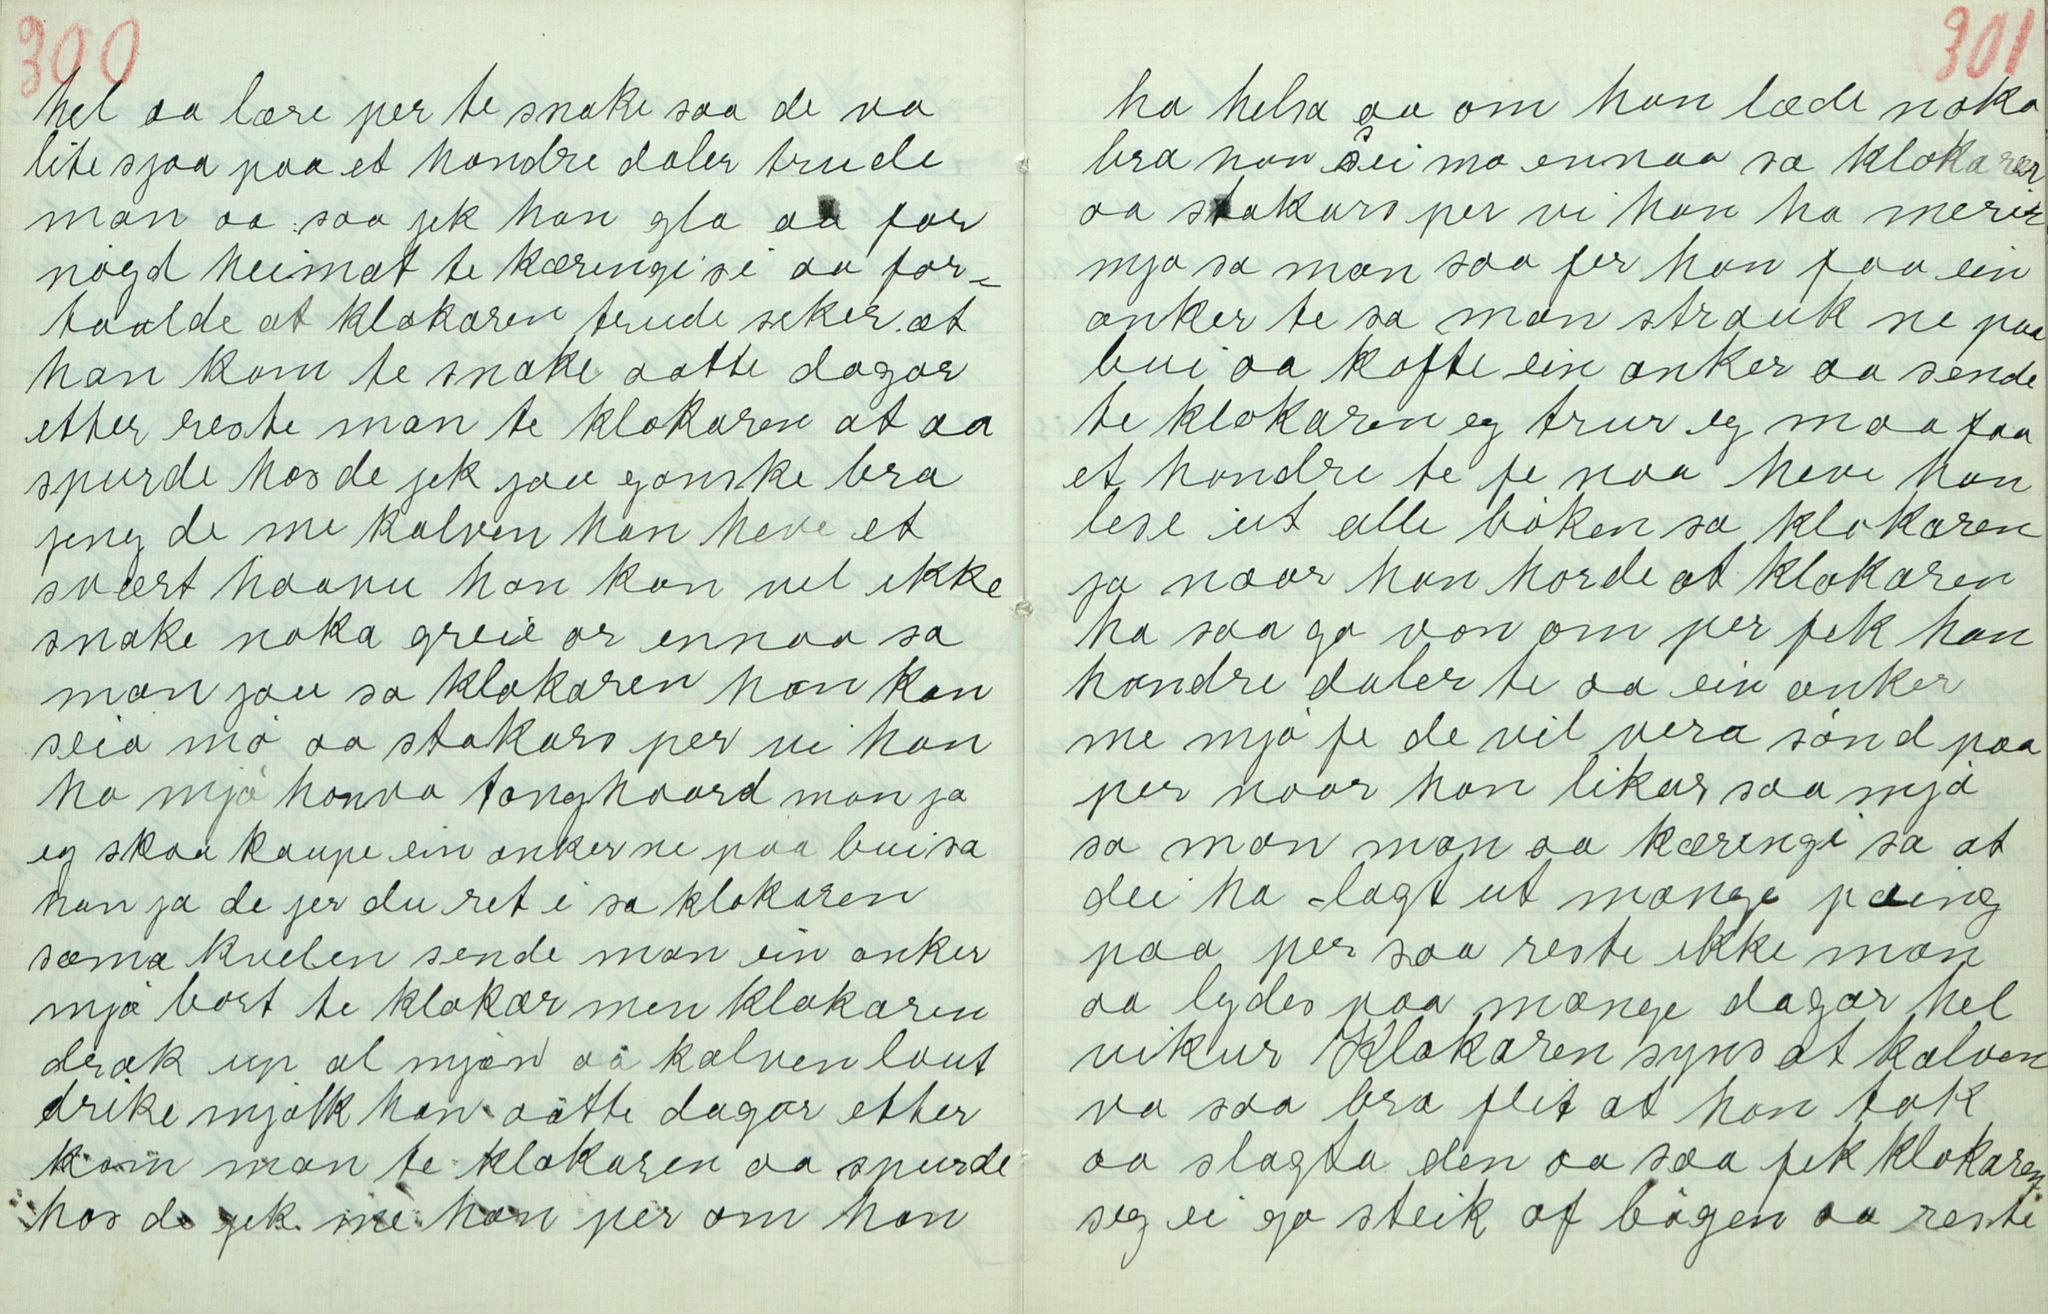 300
hel aa lære per te snake saa de va
lite sjaa paa et hondre daler trude
man aa saa jek han gla aa for
nögd heimat te kæringi si aa for-
taalde at klokaren trude seker at
han kom te snake aatte dagar
etter reste man te klokaren at aa
spurde hos de jek jau ganske bra
jeng de me kalven han heve et
svært haavu han kan vel ikke
snake noka greie or ennaa sa
man jau sa klokaren han kan
seia mö aa stakars per vi han
ha mjö honva tonghaard man ja
eg skaa kaupe ein anker ne paa bui sa
han ja de jer du ret i sa klokaren
sama kvelen sende man ein anker
mjö bort te klokar men klokaren
drak up al mjön aa kalven laut
drike mjölk han aatte dagar etter
kom man te klokaren aa spurde
hos de jek me han per om han
301
ha helsa aa om han læde noka
bra han sei mö ennaa sa klokaren
aa stakars per vi han ha merir
mjö sa man saa fer han faa ein
anker te sa man strauk ne paa
bui aa köfte ein anker aa sende
te klokaren eg trur eg maa faa
et hondre te fe naa heve han
lese ut alle böken sa klokaren
ja naar han horde at klokaren
ha saa go von om per fek han
hondre daler te aa ein anker
me mjö fe de vil vera sönd paa
per naar han likar saa mjö
sa man man aa kæringi sa at
dei ha lagt ut mange pæing
paa per saa reste ikke man
aa lydes paa mange dagar hel
vikur Klokaren syns at kalven
va saa bra feit at han tok
aa slagta den aa saa fek klokaren
seg ei go steik af bögen aa reste